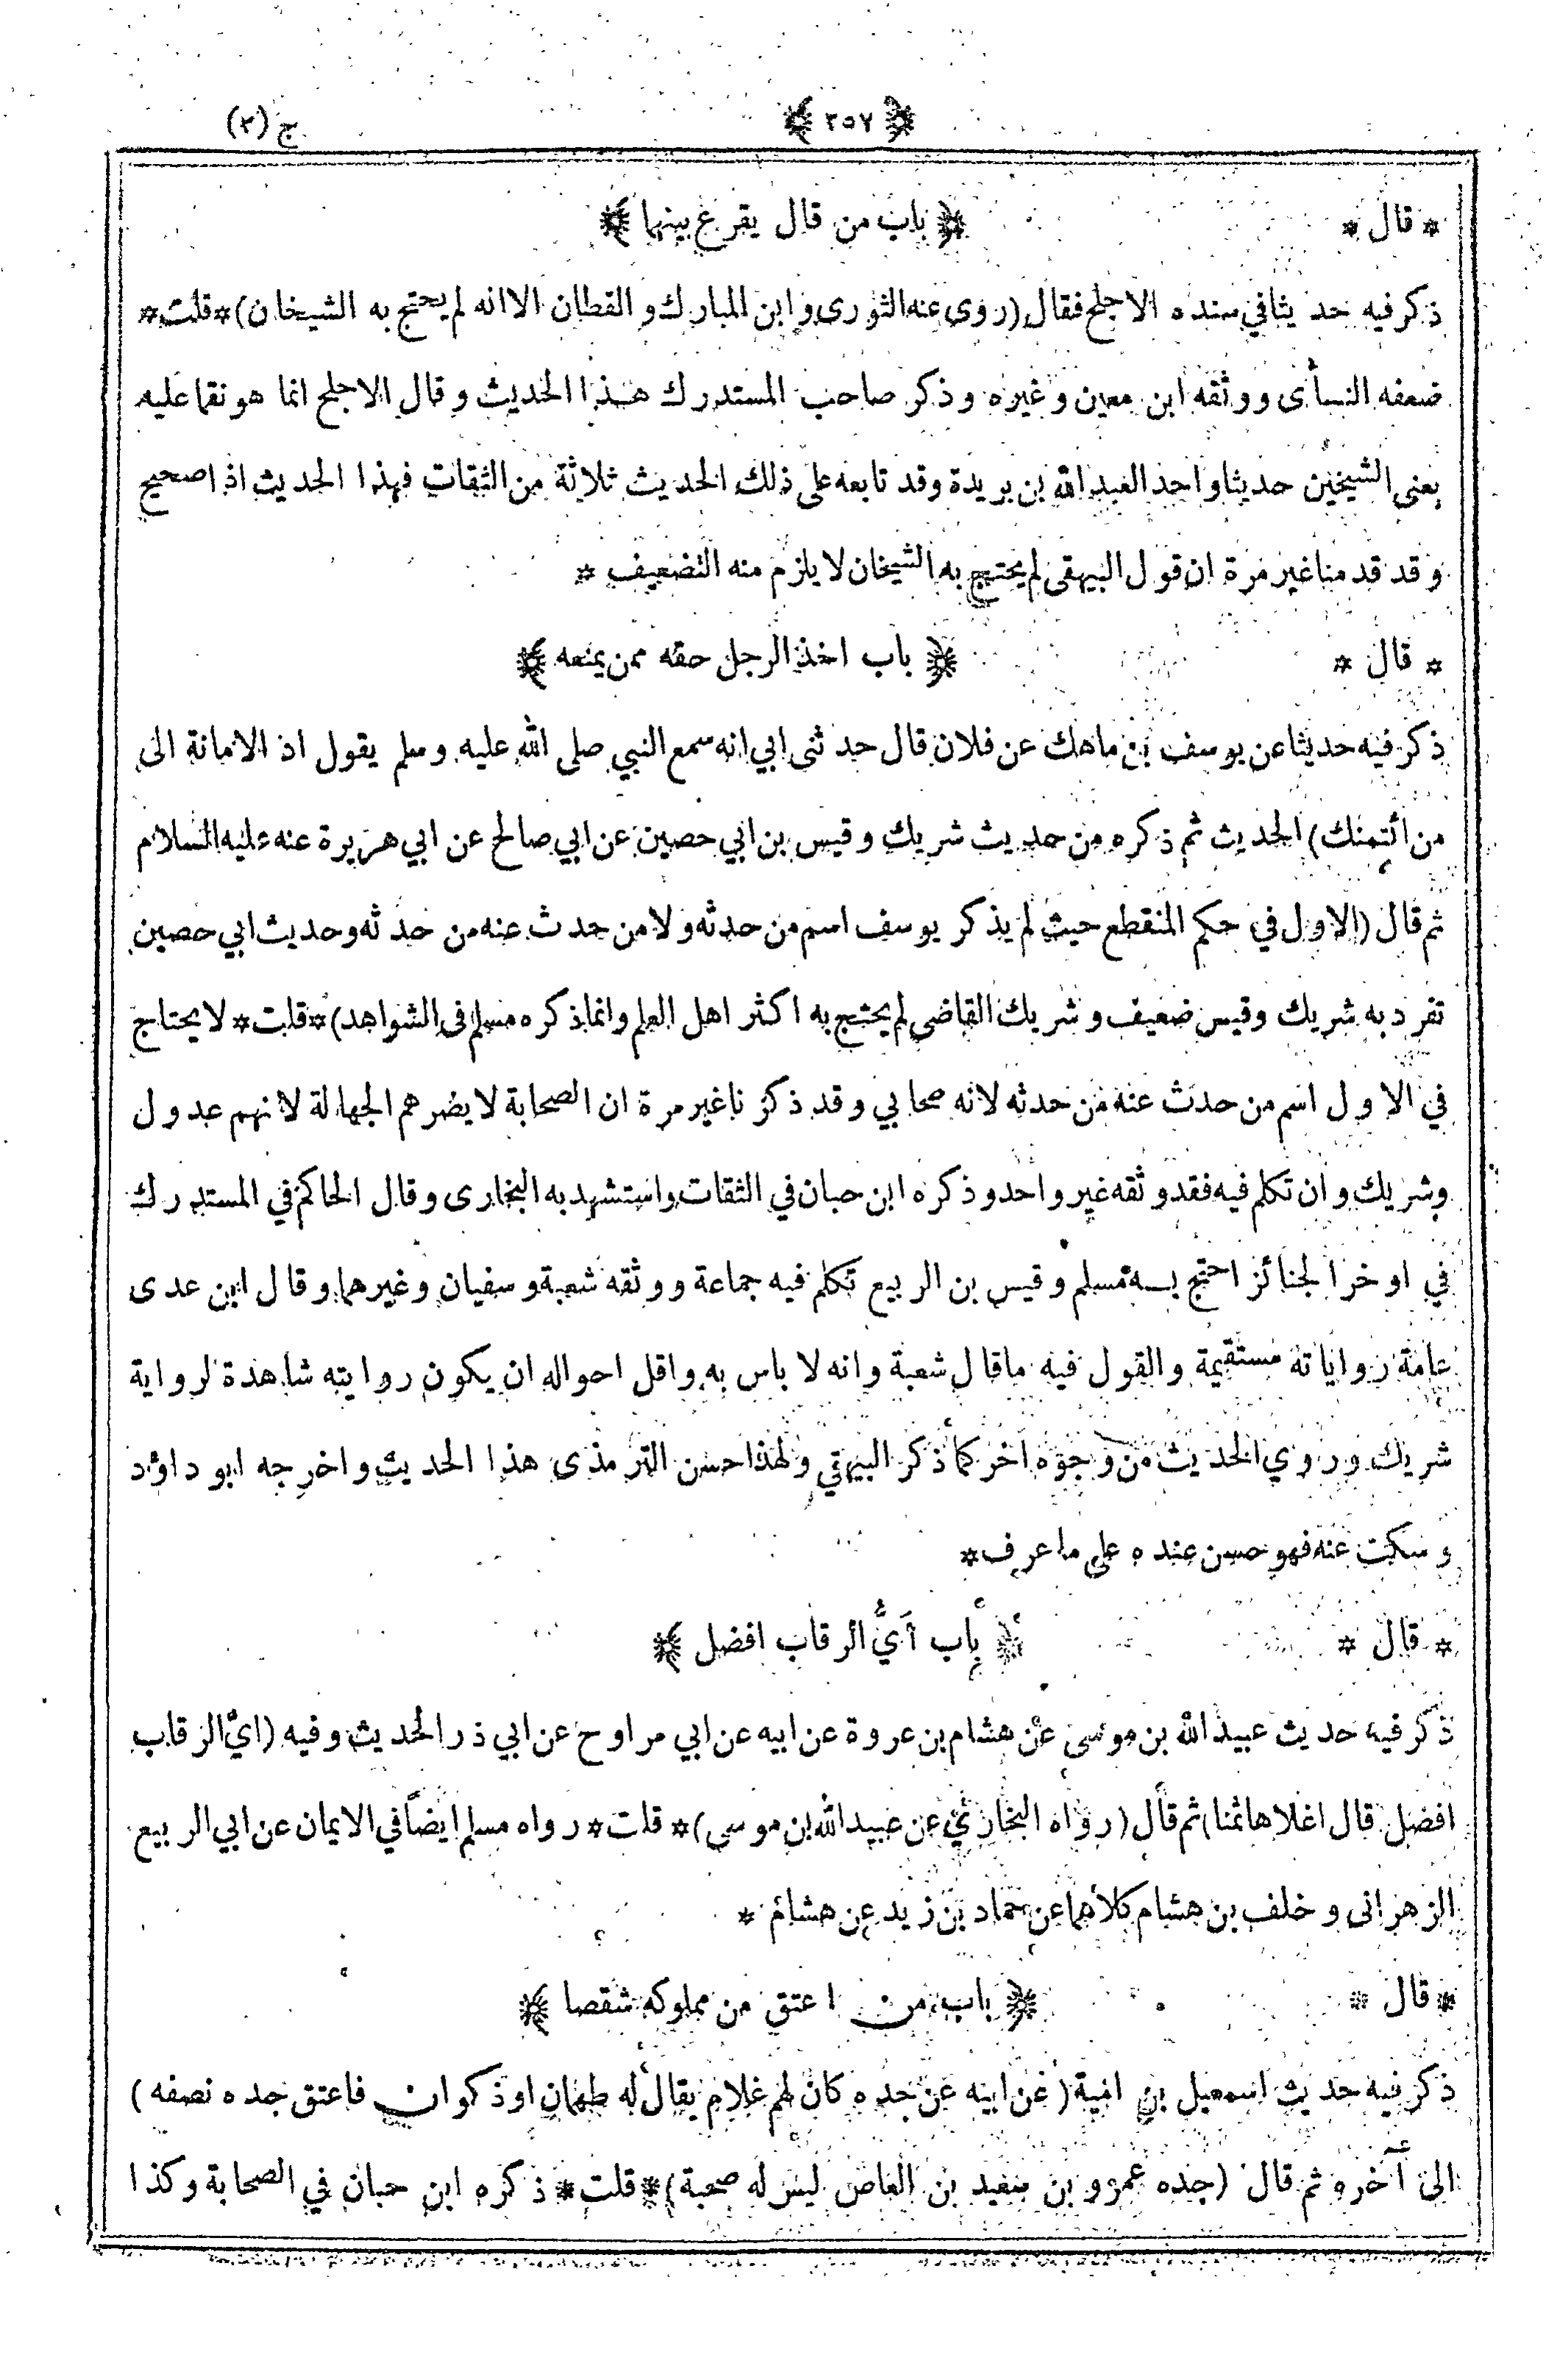 ﴿ ٣٥٧ ﴾ ج (٢)
* قال * ﴿ باب من قال يقرع بينهما ﴾
ذكر فيه حديثا في سنده الاجلح فقال (روى عنه الثورى وابن المبارك و القطان الا انه لم يحتج به الشيخان) * قلت *
ضعفه النسأى ووثقه ابن معين وغيره وذكر صاحب المستدرك هذا الحديث وقال الاجلح انما هو نقما عليه
يعنى الشيخين حديثا واحد العبد الله بن بريدة وقد تابعه على ذلك الحديث ثلاثة من الثقات فهذا الحديث اذا صحيح
وقد قدمنا غير مرة ان قول البيهقى لم يحتج به الشيخان لا يلزم منه التضعيف *
* قال * ﴿ باب اخذ الرجل حقه ممن يمنعه ﴾
ذكر فيه حديثا عن يوسف بن ماهك عن فلان قال حدثنى ابي انه سمع النبي صلى الله عليه وسلم يقول اد الامانة الى
من ائتمنك) الحديث ثم ذكره من حديث شريك وقيس بن ابي حصين عن ابي صالح عن ابي هريرة عنه عليه السلام
ثم قال (الاول في حكم المنقطع حيث لم يذكر يوسف اسم من حدثه ولا من حدث عنه من حدثه وحديث ابي حصين
تفرد به شريك وقيس ضعيف وشريك القاضى لم يحتج به اكثر اهل العلم وانما ذكره مسلم فى الشواهد) * قلت * لا يحتاج
في الاول اسم من حدث عنه من حدثه لانه صحابي وقد ذكرنا غير مرة ان الصحابة لا يضرهم الجهالة لانهم عدول
وشريك وان تكلم فيه فقد وثقه غير واحد وذكره ابن حبان في الثقات واستشهد به البخارى وقال الحاكم في المستدرك
في اوخر الجنائز احتج به مسلم وقيس بن الربيع تكلم فيه جماعة ووثقه شعبة وسفيان وغيرهما وقال ابن عدى
عامة رواياته مستقيمة والقول فيه ماقال شعبة وانه لا باس به واقل احواله ان يكون روايته شاهدة لرواية
شريك وروي الحديث من وجوه اخر كما ذكر البيهقي ولهذا حسن الترمذى هذا الحديث واخرجه ابو داؤد
وسكت عنه فهو حسن عنده على ما عرف *
* قال * ﴿ باب أيُّ الرقاب افضل ﴾
ذكر فيه حديث عبيد الله بن موسى عن هشام بن عروة عن ابيه عن ابي مراوح عن ابي ذر الحديث وفيه (ايُّ الرقاب
افضل قال اغلاها ثمنا) ثم قال (رواه البخاري عن عبيد الله بن موسى) * قلت * رواه مسلم ايضاً في الايمان عن ابي الربيع
الزهرانى وخلف بن هشام كلاهما عن حماد بن زيد عن هشام *
* قال * ﴿ باب من اعتق من مملوكه شقصا ﴾
ذكر فيه حديث اسمعيل بن امية (عن ابيه عن جده كان لهم غلام يقال له طهمان او ذكوان فاعتق جده نصفه)
الى آخره ثم قال (جده عمرو بن سعيد بن العاص ليس له صحبة) * قلت * ذكره ابن حبان في الصحابة وكذا